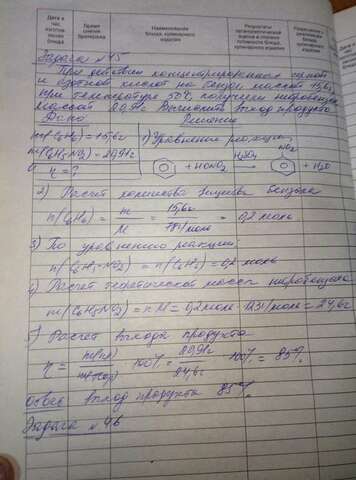 Дата и час изготовления блюда
Время снятия бракеража
Наименование блюда, кулинарного изделия
Результаты органолептической оценки и степени готовности блюда, кулинарного изделия
Задача № 45
При действии концентрированных серной
и азотной кислот на бензол массой 15,6 г
при температуре 50°, получили нитробензол
массой 20,91г Вычислите выход продукта
Дано Решение
m(C6H6) = 15,6г 1) Уравнение реакции
m(C6H5NO2) = 20,91г
η = ?
+ HONO2 H2SO4 → NO2 + H2O
2) Расчет количества вещества бензола
n(C6H6) = m/M = 15,6г/78г/моль = 0,2 моль
3) По уравнению реакции
n(C6H5-NO2) = n(C6H6) = 0,2 моль
4) Расчет теоретической массы нитробензола
m(C6H5-NO2) = n M = 0,2моль · 123г/моль = 24,6г
5) Расчет выхода продукта
η = m(пр)/m(теор) · 100% = 20,91г/24,6г · 100% = 85%
Ответ выход продукта 85%
Задача № 46